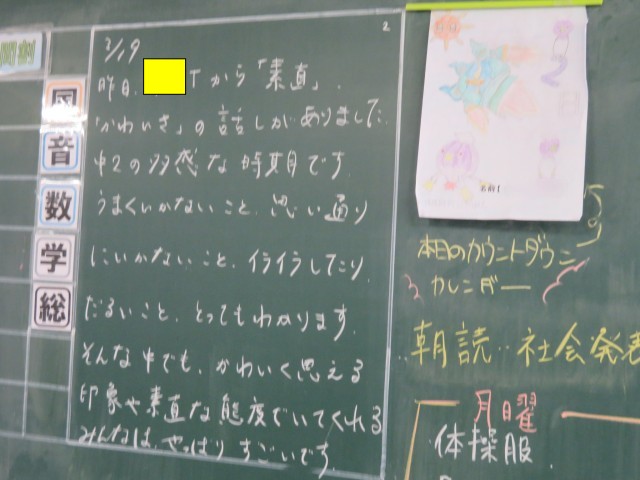 2
2/19
国
音
数
学
総
昨日、Tから「素直」、
「かわいさ」の話しがありました。
中2の多感な時期です。
うまくいかないこと、思い通り
にいかないこと、イライラしてたり、
だるいこと、とってもわかります。
そんな中でも、かわいく思える
印象や素直な態度でいてくれる
みんなは、やっぱりすごいです。
名前(
本日のカウントダウン
カレンダー
朝読 社会発表
月曜
体操服